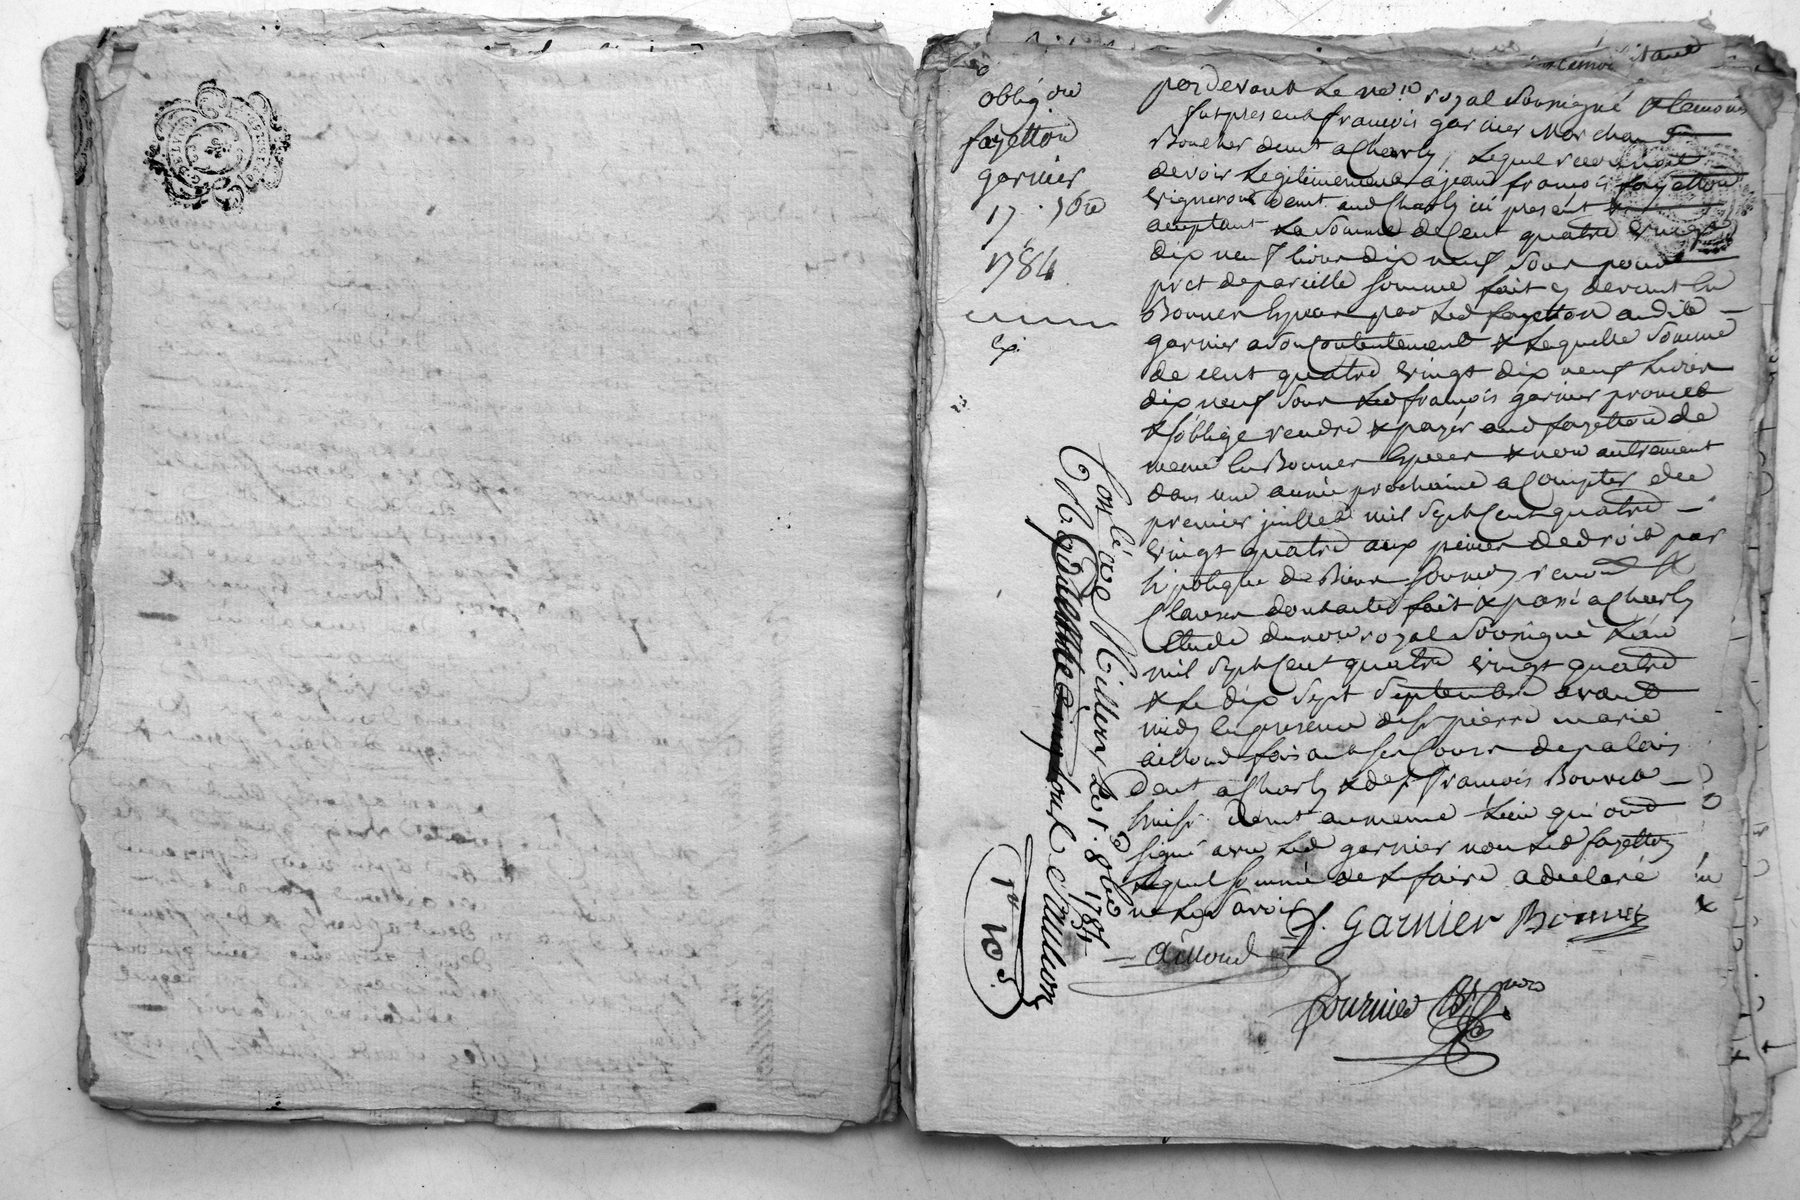 oblig on
fayetton
garnier
17. 7bre
1784
Ex.
pardevant Le no.re royal soussigné & temoins
fut present francois garnier Marchand
Boucher demt a Charly, Lequel reconnoit
devoir Legitimement a jean françois fayetton
vigneron demt aud Charly ici present &
acceptant La somme de Cent quatre vingt
dix neuf livres dix neuf sous pour
pret de pareille somme fait cy devant En
Bonnes Especes par Led fayetton audit
garnier a son Contentement & Laquelle somme
de cent quatre vingt dix neuf Livres
dix neuf sous Led francois garnier promet
& s'oblige rendre & payer aud fayetton de
meme En Bonnes Especes & non autrement
dans une année prochaine a Compter du
premier juillet mil sept Cent quatre
vingt quatre aux peines de droit par
hipotique de Biens soumis renon &
Clauses dont acte fait & passé a Charly
Etude du no.re royal soussigné L'an
mil sept Cent quatre vingt quatre
& Le dix sept septembre avant
midy En presence de sr pierre marie
ailloud
demt a Charly & de sr francois Bonnet
huissr. demt au meme Lieu qui ont
signé avec Led garnier non Led fayetton
Lequel sommé de Le faire a declaré
ne Le savoir
f. Garnier Bonnet
ailloud
fournier
Conlé a Millery Le 1.er 8bre 1784
1#
10 s